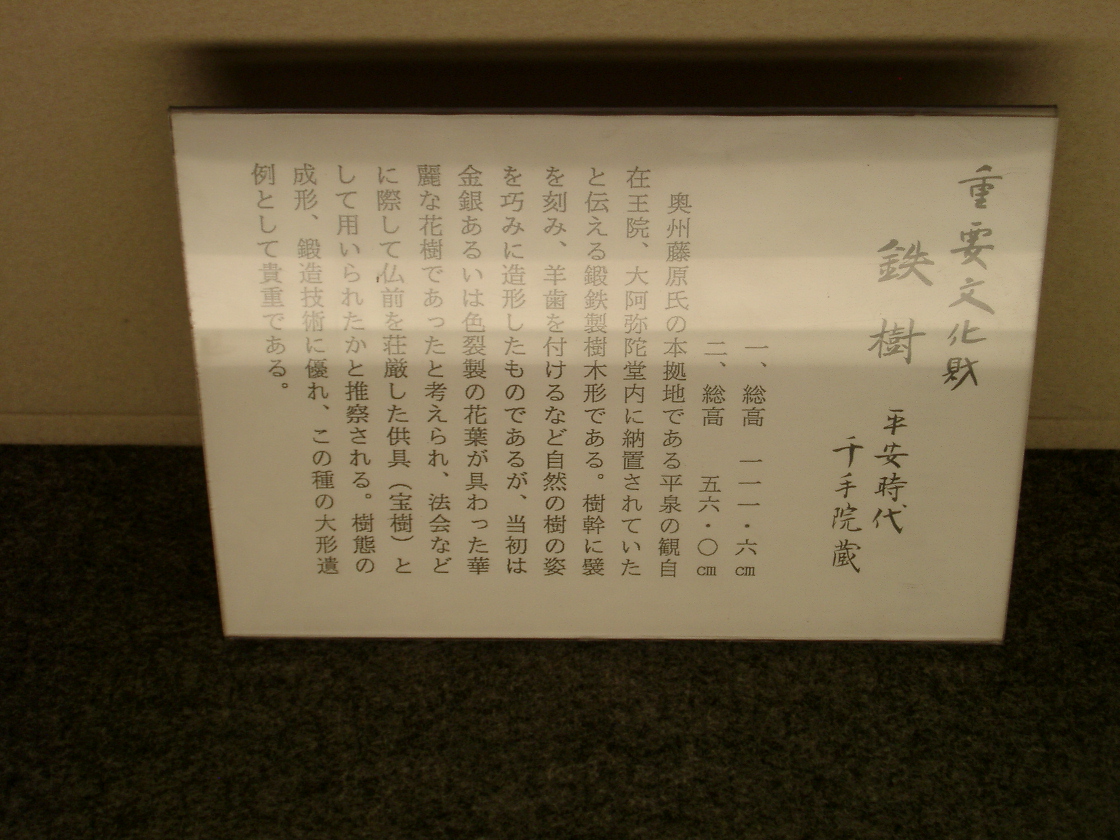 重要文化財
鉄樹
平安時代
千手院蔵
一、総高　一一一・六㎝
二、総高　五六・〇㎝
奥州藤原氏の本拠地である平泉の観自
在王院、大阿弥陀堂内に納置されていた
と伝える鍛鉄製樹木形である。樹幹に襞
を刻み、羊歯を付けるなど自然の樹の姿
を巧みに造形したものであるが、当初は
金銀あるいは色裂製の花葉が具わった華
麗な花樹であったと考えられ、法会など
に際して仏前を荘厳した供具（宝樹）と
して用いられたかと推察される。樹態の
成形、鍛造技術に優れ、この種の大形遺
例として貴重である。